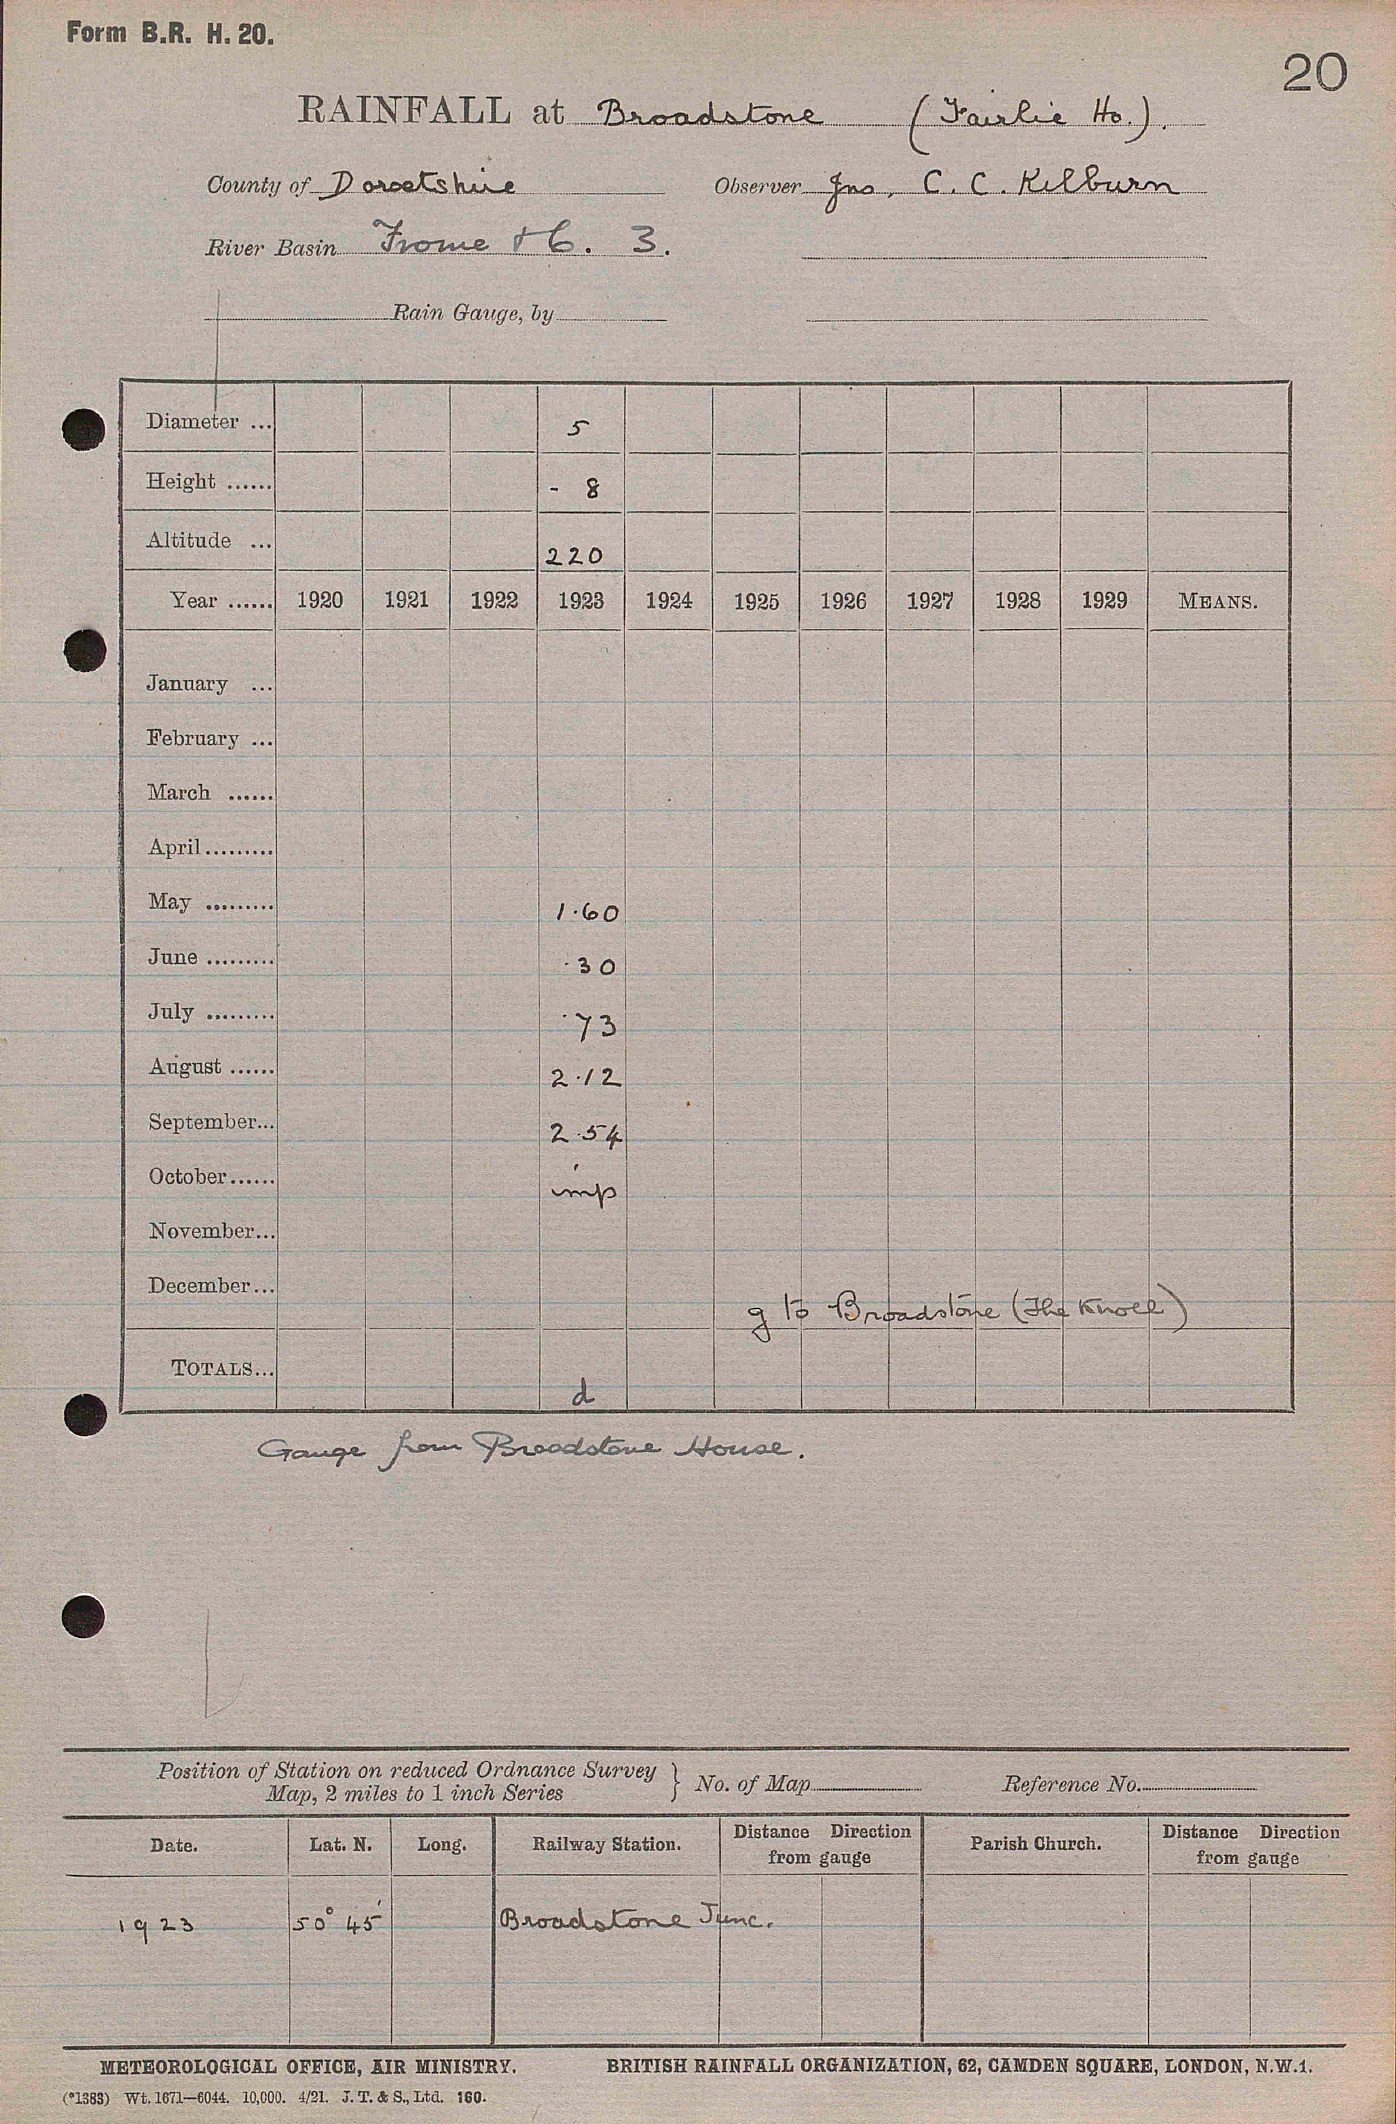 Form B.R. H. 20.
20
RAINFALL at Broadstone (Fairlie Ho.).
County of Dorsetshire Observer Jno. C. C. Kilburn
River Basin Frome &c. 3.
Rain Gauge, by
Diameter ... 5
Height ...... - 8
Altitude ... 220
Year ...... 1920 1921 1922 1923 1924 1925 1926 1927 1928 1929 MEANS.
January ...
February ...
March ......
April.........
May ......... 1·60
June ......... ·30
July ......... ·73
August ...... 2·12
September... 2·54
October...... imp
November...
December...
g to Broadstone (The Knoll)
TOTALS... d
Gauge from Broadstone House.
Position of Station on reduced Ordnance Survey
Map, 2 miles to 1 inch Series } No. of Map Reference No.
Date. Lat. N. Long. Railway Station. Distance Direction from gauge Parish Church. Distance Direction from gauge
1923 50° 45' Broadstone Junc.
METEOROLOGICAL OFFICE, AIR MINISTRY. BRITISH RAINFALL ORGANIZATION, 62, CAMDEN SQUARE, LONDON, N.W.1.
(*1383) Wt. 1671—6044. 10,000. 4/21. J. T. & S., Ltd. 160.